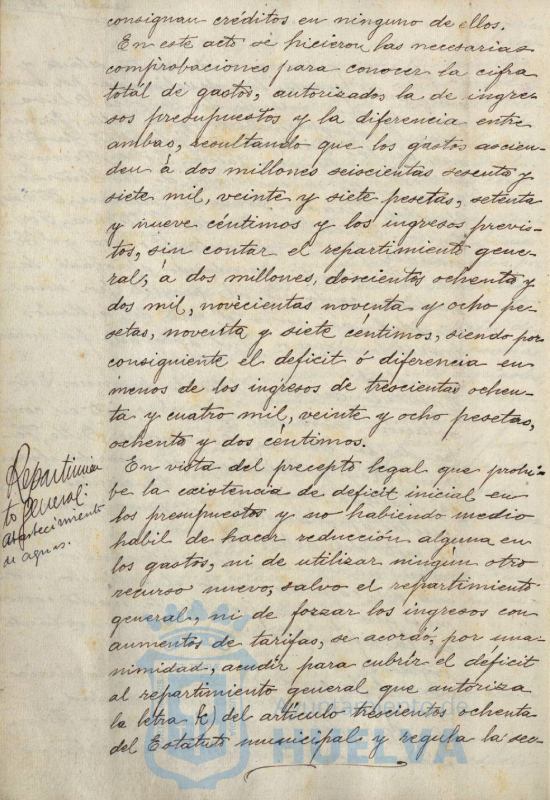 consignan créditos en ninguno de ellos.
En este acto se hicieron las necesarias
comprobaciones para conocer la cifra
total de gastos, autorizados, la de ingre-
sos presupuestos y la diferencia entre
ambas, resultando que los gastos ascien-
den á dos millones seiscientas sesenta y
siete mil, veinte y siete pesetas, setenta
y nueve céntimos y los ingresos previs-
tos, sin contar el repartimiento gene-
ral, á dos millones, doscientos ochenta y
dos mil, novecientas noventa y ocho pe-
setas, noventa y siete centimos, siendo por
consiguiente el deficit ó diferencia en
menos de los ingresos de trescientas ochen-
ta y cuatro mil, veinte y ocho pesetas,
ochenta y dos céntimos.
Repartimien
to general:
abastecimiento
de aguas.
En vista del precepto legal que prohi-
be la existencia de deficit inicial en
los presupuestos y no habiendo medio
habil de hacer reducción alguna en
los gastos, ni de utilizar ningún otro
recurso nuevo, salvo el repartimiento
general, ni de forzar los ingresos con
aumentos de tarifas, se acordó, por una-
nimidad, acudir para cubrir el déficit
al repartimiento general que autoriza
la letra c) del artículo trescientos ochenta
del Estatuto municipal y regula la sec-
Ayuntamiento de
HUELVA